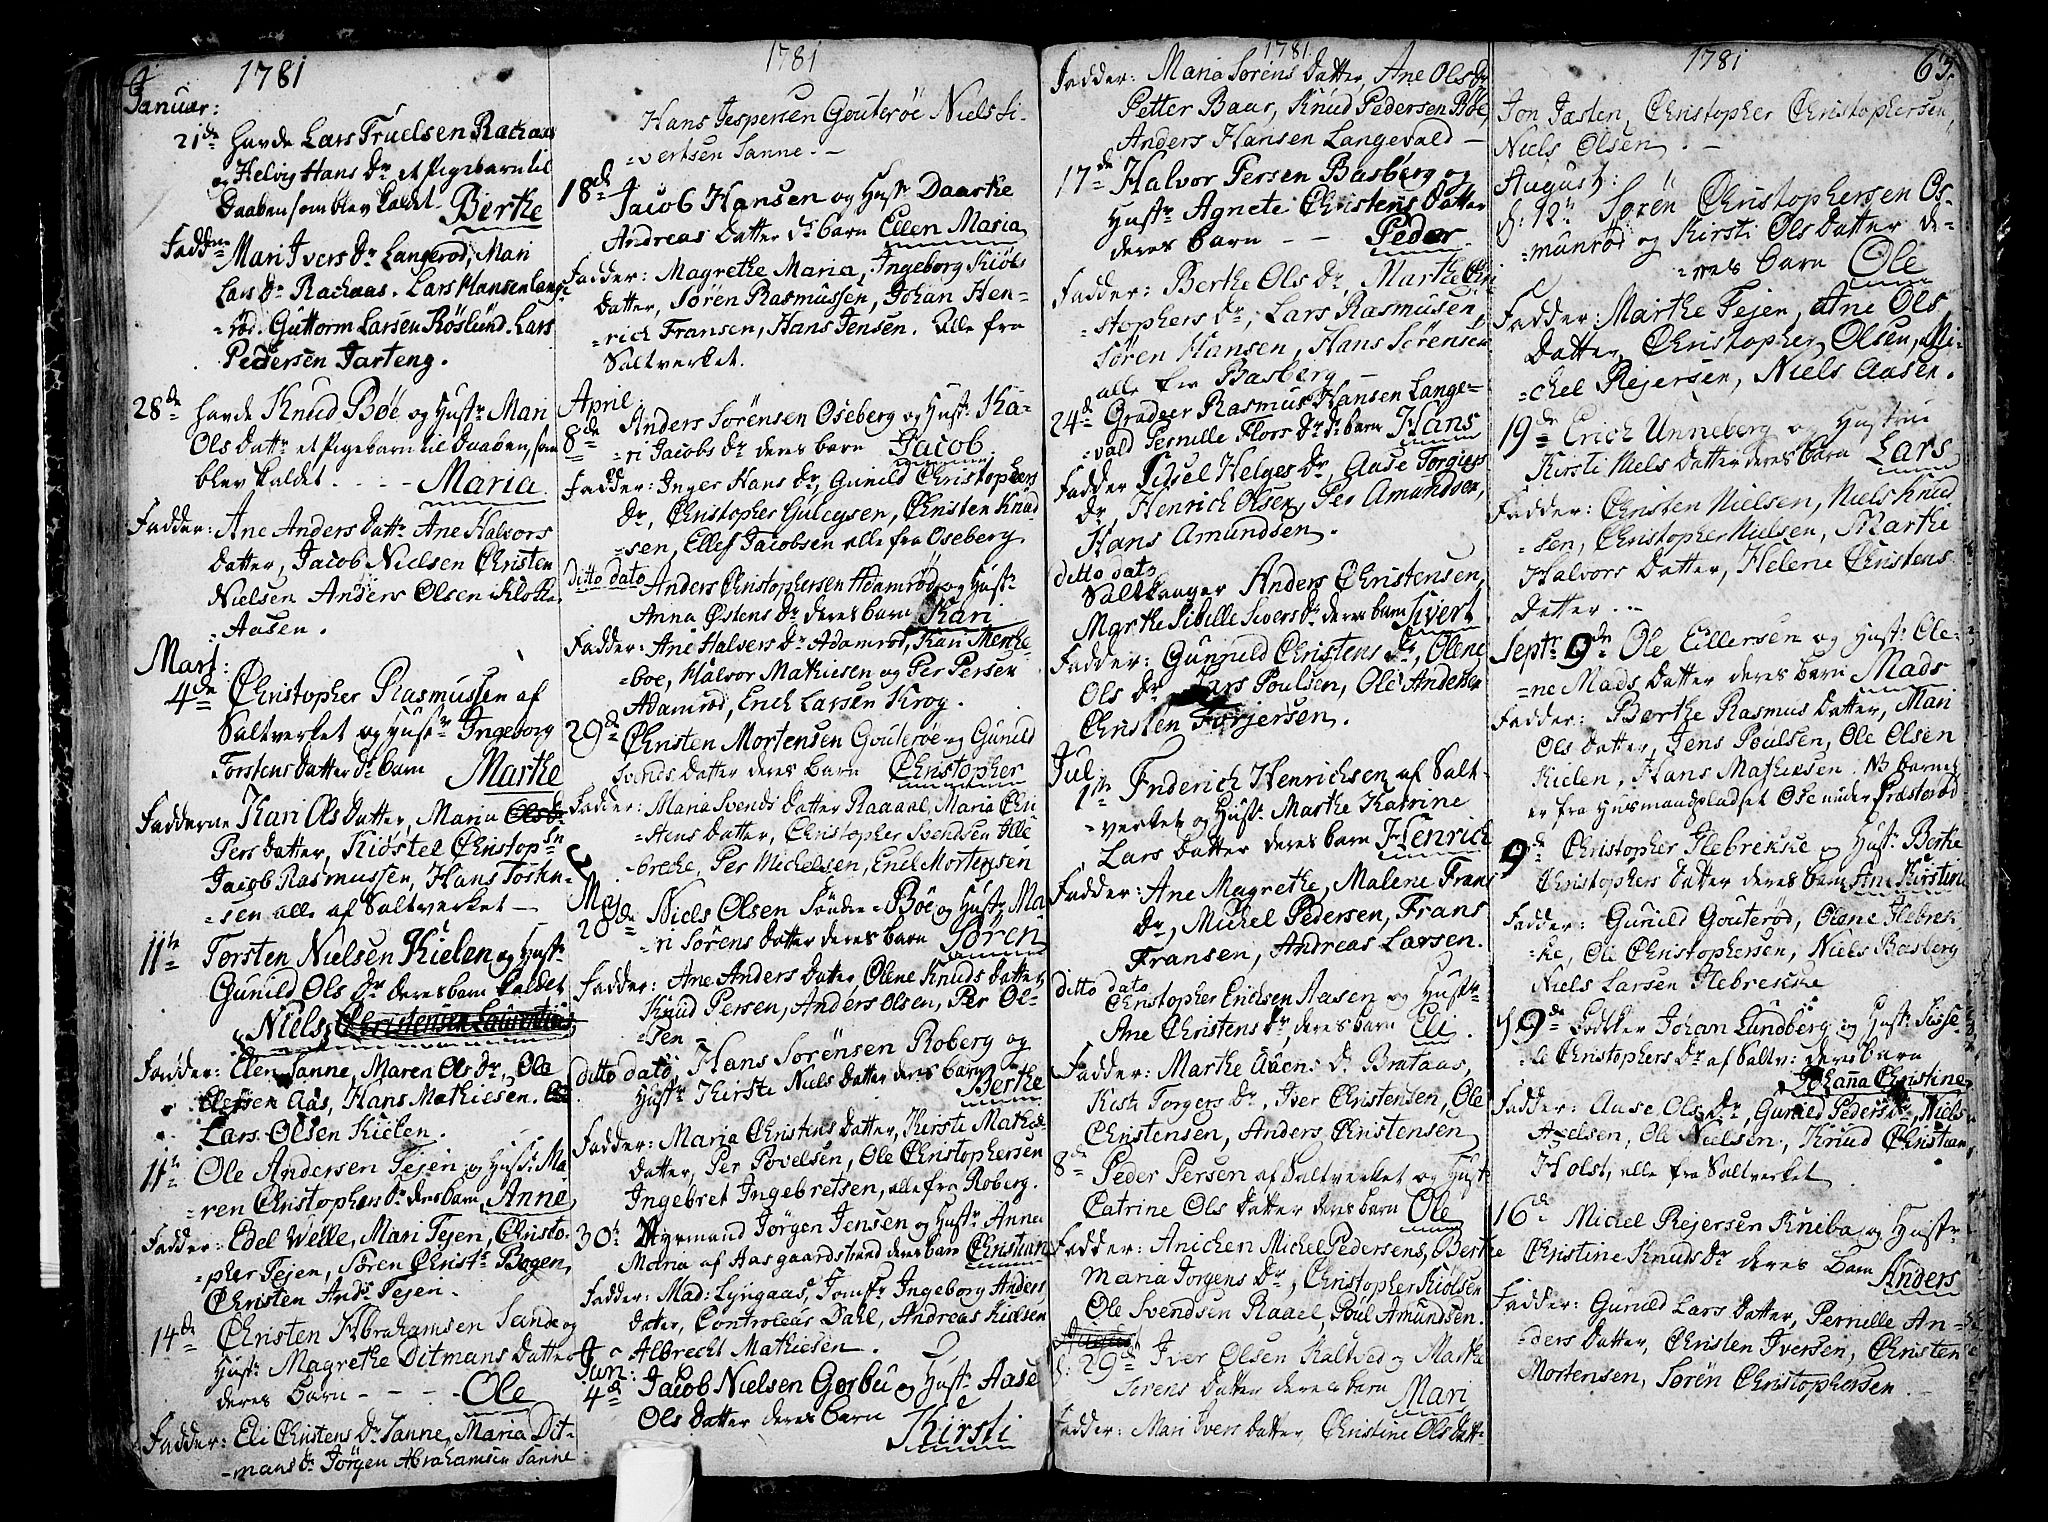 1781
Januar:
21de havde Lars Truelsen Rachaas
og Helvig Hans Dr et Pigebarn til
Daaben som blev kaldet Berthe
Faddere
Mari Ivers Dr Langerød, Mari
Lars Dr Rachaas. Lars Hansen Lang-
=rød. Guttorm Larsen Røslund. Lars
Pedersen Jarteng.
28de havde Knud Bøe og Hustr Mari
Ols Dattr et Pigebarn til Daaben, som
blev kaldet. - - - Maria
Fadder: Ane Anders Dattr Ane Halvors
Datter, Jacob Nielsen Christen
Nielsen Anders Olsen Klokke
=Aasen.
Mart:
4de Christopher Rasmussen af
Saltverket og Hustr Ingeborg
Torstens Datter Ds barn Marthe
Fadderne Kari Ols Datter, Maria Ols Dr
Pers Datter, Kiøstel Christopsn
Jacob Rasmussen, Hans Toskn-
=sen alle af Saltverket —
11te Torsten Nielsen Kielen og Hustr
Gunild Ols Dr deres barn kaldet
Niels Christensen Laurentius
Fadder: Elen Sanne, Maren Ols Dr, Ole
Olefsen Aas, Hans Mathiesen.
Lars Olsen Kielen.
11te Ole Andersen Tejen og Hustr Ma
=ren Christophers Dr deres barn Anne
Fadder: Edel Welle, Mari Tejen, Christo-
=pher Tejen, Søren Christs Bogen,
Christen Ands Tejen.
14de Christen Abrahamsen Sande og
Hustr Magrethe Ditmans Datter
deres barn - - - - Ole
Fadder: Eli Christens Dr Sanne, Maria Dit-
=mans Dr Jørgen Abrahamsen Sanne
1781
Hans Jespersen Gouterøe Niels Si-
=vertsen Sanne. -
18de Jacob Hansen og Hustr Daarthe
Andreas Datter Ds barn Ellen Maria
Fadder: Magrethe Maria, Ingeborg Kiøls
Datter, Søren Rasmussen, Johan Hen-
=rich Fransen, Hans Jensen. Alle fra
Saltverket.
April
8de Anders Sørensen Oseberg og Hustr Ka-
=ri Jacobs Dr deres barn Jacob
Fadder: Inger Hans Dr, Gunild Christophers
Dr, Christopher Gulcysen, Christen Knud
=sen, Ellef Jacobsen alle fra Oseberg
ditto dato Anders Christophersen Adamrød og Hustr
Anna Østens Dr deres barn Kari
Fadder: Ane Halvers Dr Adamrød, Kari Menke
=boe, Halvor Mathiesen og Per Persen
Adamrød, Erich Larsen Krog.
29de Christen Mortensen Gouterøe og Gunild
Svends Datter deres barn Christopher
Fadder: Maria Svends Datter Raaaal, Maria Chri
=stens Datter, Christopher Svendsen Ille
=breche, Per Michelsen, Enel Mortensen
Maj
20de Niels Olsen Søndre = Bøe og Hustr Ma
=ri Sørens Datter deres barn Søren
Fadder: Ane Anders Datter, Olene Knuds Datter,
Knud Persen, Anders Olsen, Per Ol-
=sen -
ditto dato, Hans Sørensen Roberg og
Hustr Kirste Niels Datter deres barn Berthe
Fadder: Maria Christens Datter, Kirste Mathis
Datter, Per Povelsen, Ole Christophersen
Ingebret Ingebretsen, alle fra Roberg.
30te Styrmand Jørgen Jensen og Hustr Anne
Maria af Aasgaardstrand deres barn Christian
Fadder: Mad: Lyngaas, Jomfr Ingeborg Anders
Dater, Controleus Dahl, Andreas Kielsen
Albrecht Mathiesen.
Jun:
4de Jacob Nielsen Gorbu og Hustr Aase
Ols Datter deres barn Kirsti
1781
Fadder: Maria Sørens Datter, Ane Ols Dr
Petter Baar, Knud Pedersen Bøe,
Anders Hansen Langevald —
17de Halvor Persen Basberg og
Hustr Agnete Christens Datter
deres barn - - Peder
Fadder: Berthe Ols Dr, Marthe Chri
=stophers Dr, Lars Rasmusen,
Søren Hansen, Hans Sørensen
alle fra Basberg —
24de Gradeer Rasmus Hansen Lange-
=vald Pernille Flors Dr Ds barn Hans
Fadder Sidsel Helges Dr, Aase Torgiers
Dr, Henrich Olsen, Per Amundsen,
Hans Amundsen.
ditto dato
Saltkanger Anders Christensen,
Marthe Sibille Sivers Dr deres barn Sivert
Fadder: Gunnild Christens Dr, Olene
Ols Dr Lars Poulsen, Ole Andersen
Christen Torjersen.
Jul:
1te Friderich Henrichsen af Salt-
=verket og Hustr Marthe Katrine
Lars Datter deres barn Henrich
Fadder: Ane Magrethe, Malene Frans
Dr, Michel Pedersen, Frans
Fransen, Andreas Larsen.
ditto dato
Christopher Ericksen Aasen og Hustr
Ane Christens Dr, deres barn Eli.
Fadder: Marthe Auens D. Brataas,
Kirsti Torgers Dr, Iver Christensen, Ole
Christensen, Anders Christensen
8de Peder Persen af Saltverket og Hustr
Catrine Ols Datter deres barn Ole
Fadder: Anichen Michel Pedersens, Berthe
Maria Jorgens Dr, Christopher Kiølsen
Ole Svendsen Raael, Poul Amundsen.
29de Iver Olsen Kaltved og Marthe
Sørens Datter deres barn Mari
Fadder: Mari Ivers Datter, Christine Ols Datt-
1781
63.
Jon Jæsten, Christopher Christophersen,
Niels Olsen. -
August:
d: 12te Søren Christophersen Os-
=munrød og Kirsti Ols Datter de-
=res barn Ole
Fadder: Marthe Tejen, Ane Ols
Datter, Christopher Olsen, Mi-
=chel Rejersen, Niels Aasen.
19de Erich Unneberg og Hustrue
Kirsti Niels Datter deres barn Lars
Fadder: Christen Nielsen, Niels Knud
=sen, Christopher Nielsen, Marthe
Halvors Datter, Helene Christens
Datter. --
Septr 9de Ole Eillersen og Hustr Ole-
=ne Mads Datter deres barn Mads
Fadder: Berthe Rasmus Datter, Mari
Ols Datter, Jens Poulsen, Ole Olsen
Kielen, Hans Mathiesen. NB barnet
er fra Husmandpladset Ose under Præsterød
9de Christopher Ilebrekke og Hustr Berthe
Christophers Datter deres barn Ane Kirstine
Fadder: Gunild Gouterød, Olene Ilebrek
=ke, Ole Christophersen, Niels Basberg
Niels Larsen Ilebrekke
d. 9de Bødtker Johan Lundberg og Hustr Sisse-
=le Christophers Dr af Saltv: deres barn
Johanna Christine
Fadder: Aase Ols Dr, Guneld Peders Dr, Niels
Axelsen, Ole Nielsen, Knud Christian
Holst, alle fra Saltverket
16de Michel Rejersen Kneiba og Hustr
Christine Knuds Dr deres barn Anders
Fadder: Gunild Lars Datter, Pernelle An-
=ders Datter, Christen Iversen, Christen
Mortensen, Søren Christophersen.